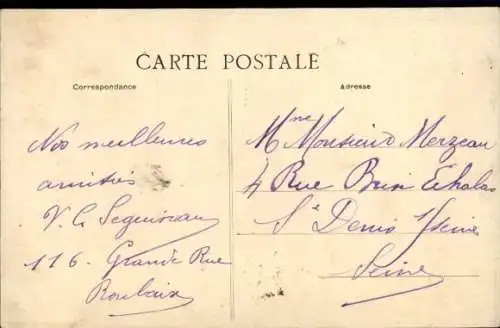 CARTE POSTALE
Correspondance
Adresse
Nos meilleures
amitiés
V. C.
116. Grande Rue
Roubaix
Mme Monsieur Merzeau
4 Rue Brise Echalas
St Denis s/Seine
Seine